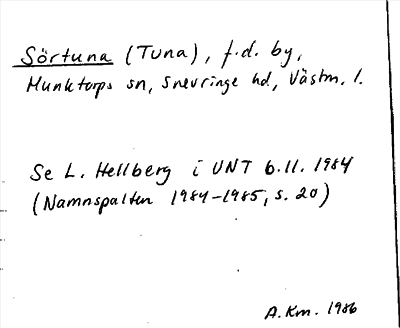 Sörtuna (Tuna), f.d. by,
Munktorps sn, Snevringe hd, Västm. l.
Se L. Hellberg i UNT 6.11. 1984
(Namnspalten 1984-1985, s. 20)
A. Km. 1986